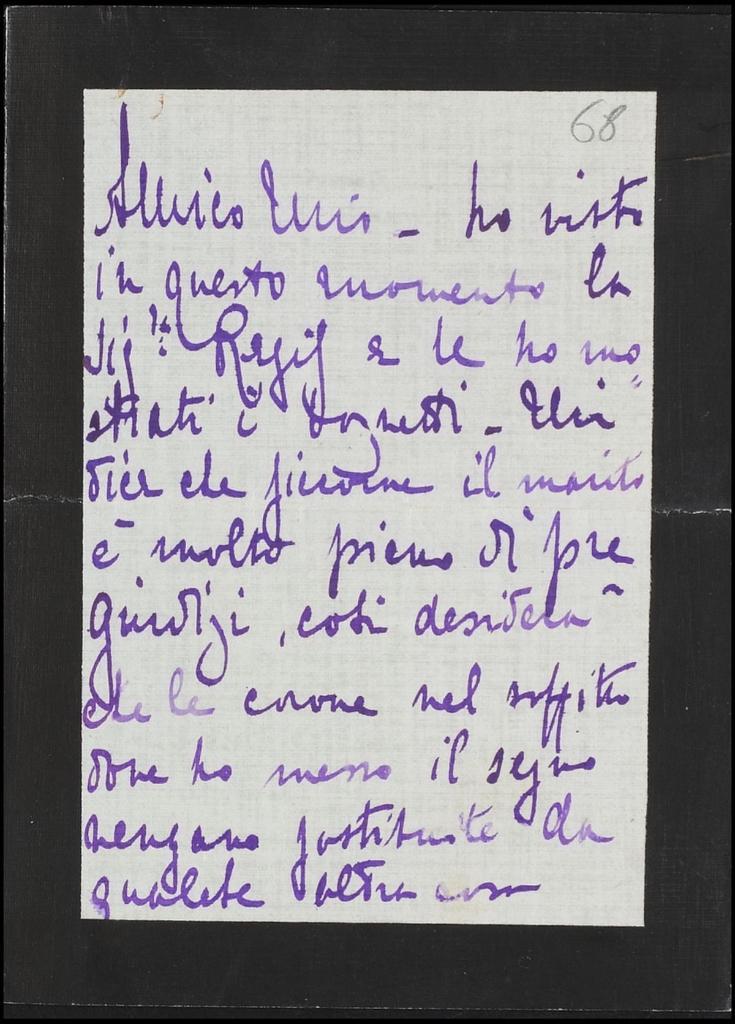 68
Amico mio - ho visto
in questo momento la
Sig.ra Regis e le ho mo
strati i bozzetti - Mi
dice che siccome il marito
è molto pieno di pre
giudizi, così desidera
che le corone nel soffitto
dove ho messo il segno
vengano sostituite da
qualche altra cosa